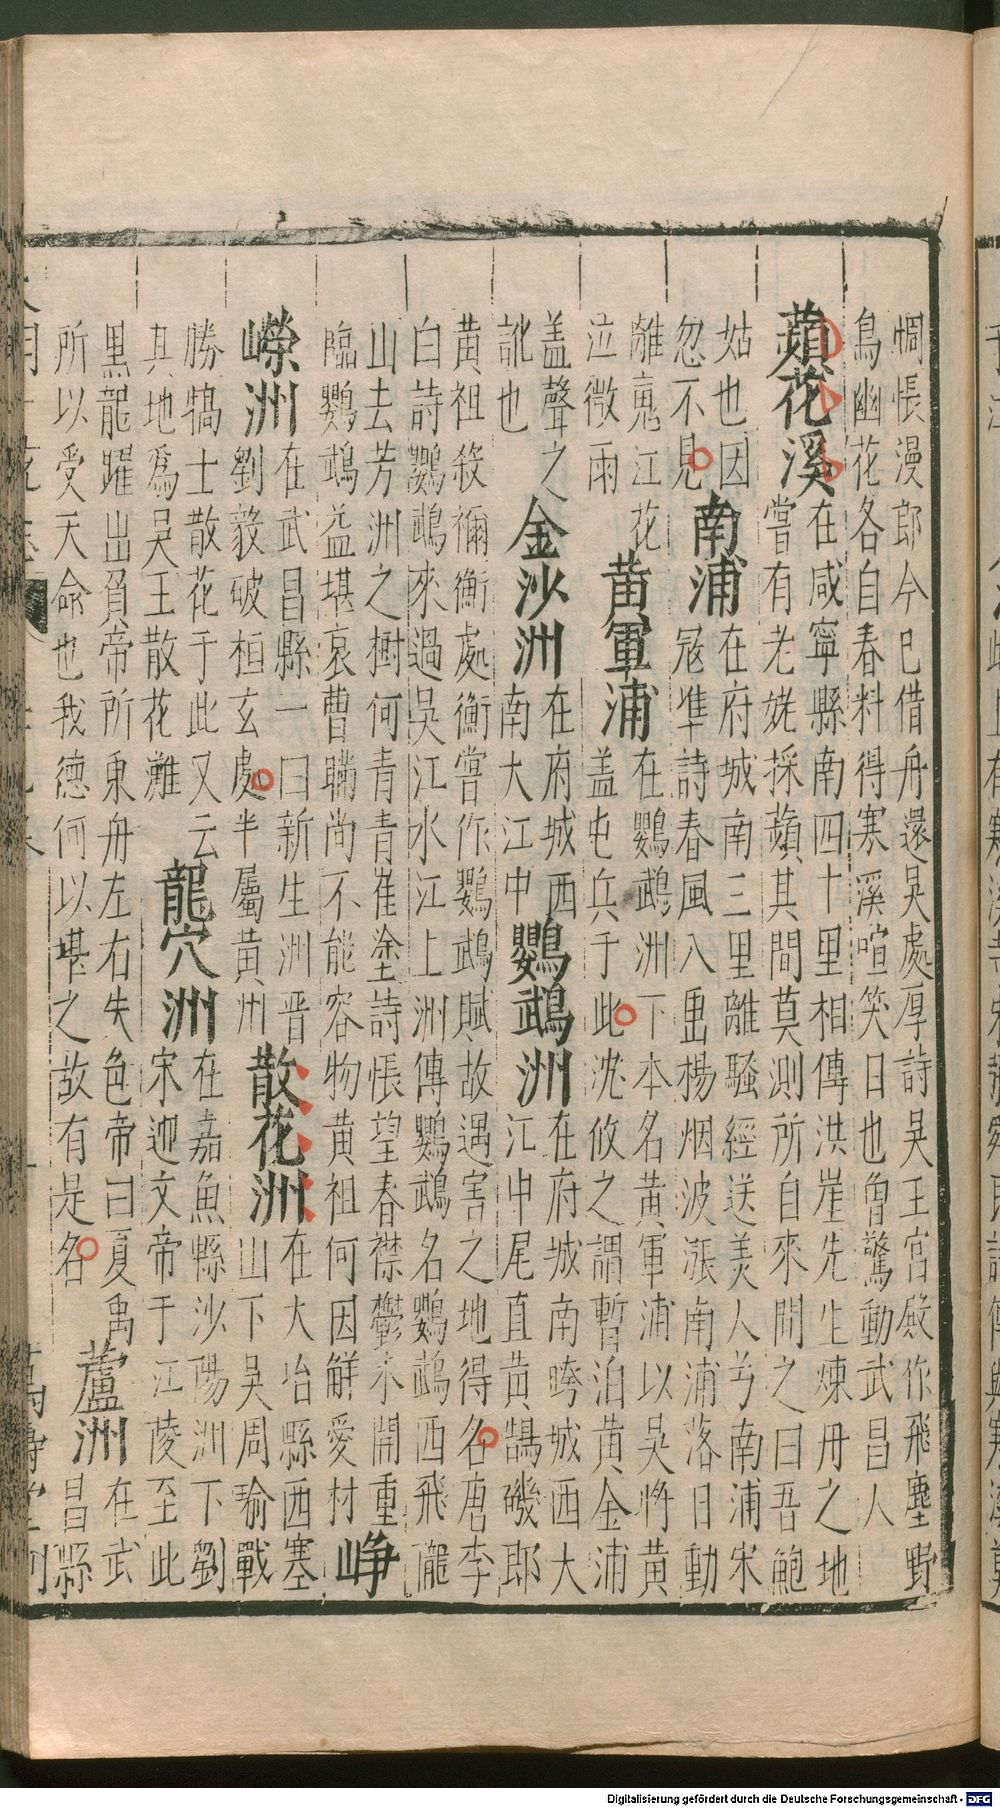 惆悵漫郎今已借舟還吳處厚詩吳王宮殿作飛塵野
鳥幽花各自春料得寒溪喧笑日也曾驚動武昌人
蘋花溪
在咸寧縣南四十里相傳洪崖先生煉丹之地
嘗有老姥採蘋其間莫測所自來問之曰吾鮑
姑也因
忽不見
南浦
在府城南三里離騷經送美人兮南浦宋
冦準詩春風入畵楊烟波漲南浦落日動
離䰟江花
泣微雨
黄軍浦
在鸚鵡洲下本名黄軍浦以吳將黄
盖屯兵于此沈攸之謂暫泊黄金浦
盖聲之
訛也
金沙洲
在府城西
南大江中
鸚鵡洲
在府城南跨城西大
江中尾直黄鵠磯郎
黄祖殺禰衡處衡嘗作鸚鵡賦故遇害之地得名唐李
白詩鸚鵡來過吳江水江上洲傳鸚鵡名鸚鵡西飛隴
山去芳洲之樹何青青崔塗詩悵望春襟鬱未開重
臨鸚鵡益堪哀曹瞞尚不能容物黄祖何因觧愛材
崢
嶸洲
在武昌縣一曰新生洲晋
劉毅破桓玄處半屬黄州
散花洲
在大冶縣西塞
山下吳周瑜戰
勝犒士散花于此又云
其地爲吳王散花灘
龍穴洲
在嘉魚縣沙陽洲下劉
宋迎文帝于江陵至此
黒龍躍出負帝所乗舟左右失色帝曰夏禹
所以受天命也我德何以堪之故有是名
蘆洲
在武
昌縣
Digitalisierung gefördert durch die Deutsche Forschungsgemeinschaft - DFG